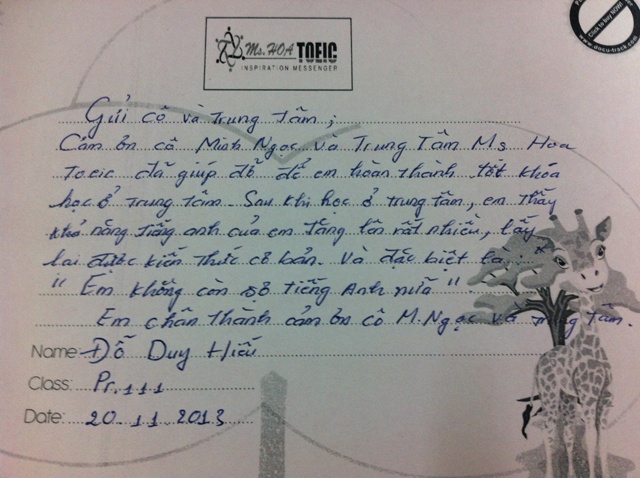 Ms. HOA TOEIC
INSPIRATION MESSENGER
Click to buy NOW!
www.docu-track.com
Gửi cô và Trung Tâm ;
Cám ơn cô Minh Ngọc và Trung Tâm Ms Hoa
Toeic đã giúp đỡ để em hoàn thành tốt khóa
học ở trung tâm. Sau khi học ở trung tâm, em thấy
khả năng tiếng anh của em tăng lên rất nhiều, lấy
lại được kiến thức cơ bản. Và đặc biệt là :
" Em không còn sợ tiếng Anh nữa "
Em chân thành cảm ơn cô M. Ngọc và trung tâm.
Name: Đỗ Duy Hiếu
Class: Pr.111
Date: 20.11.2013